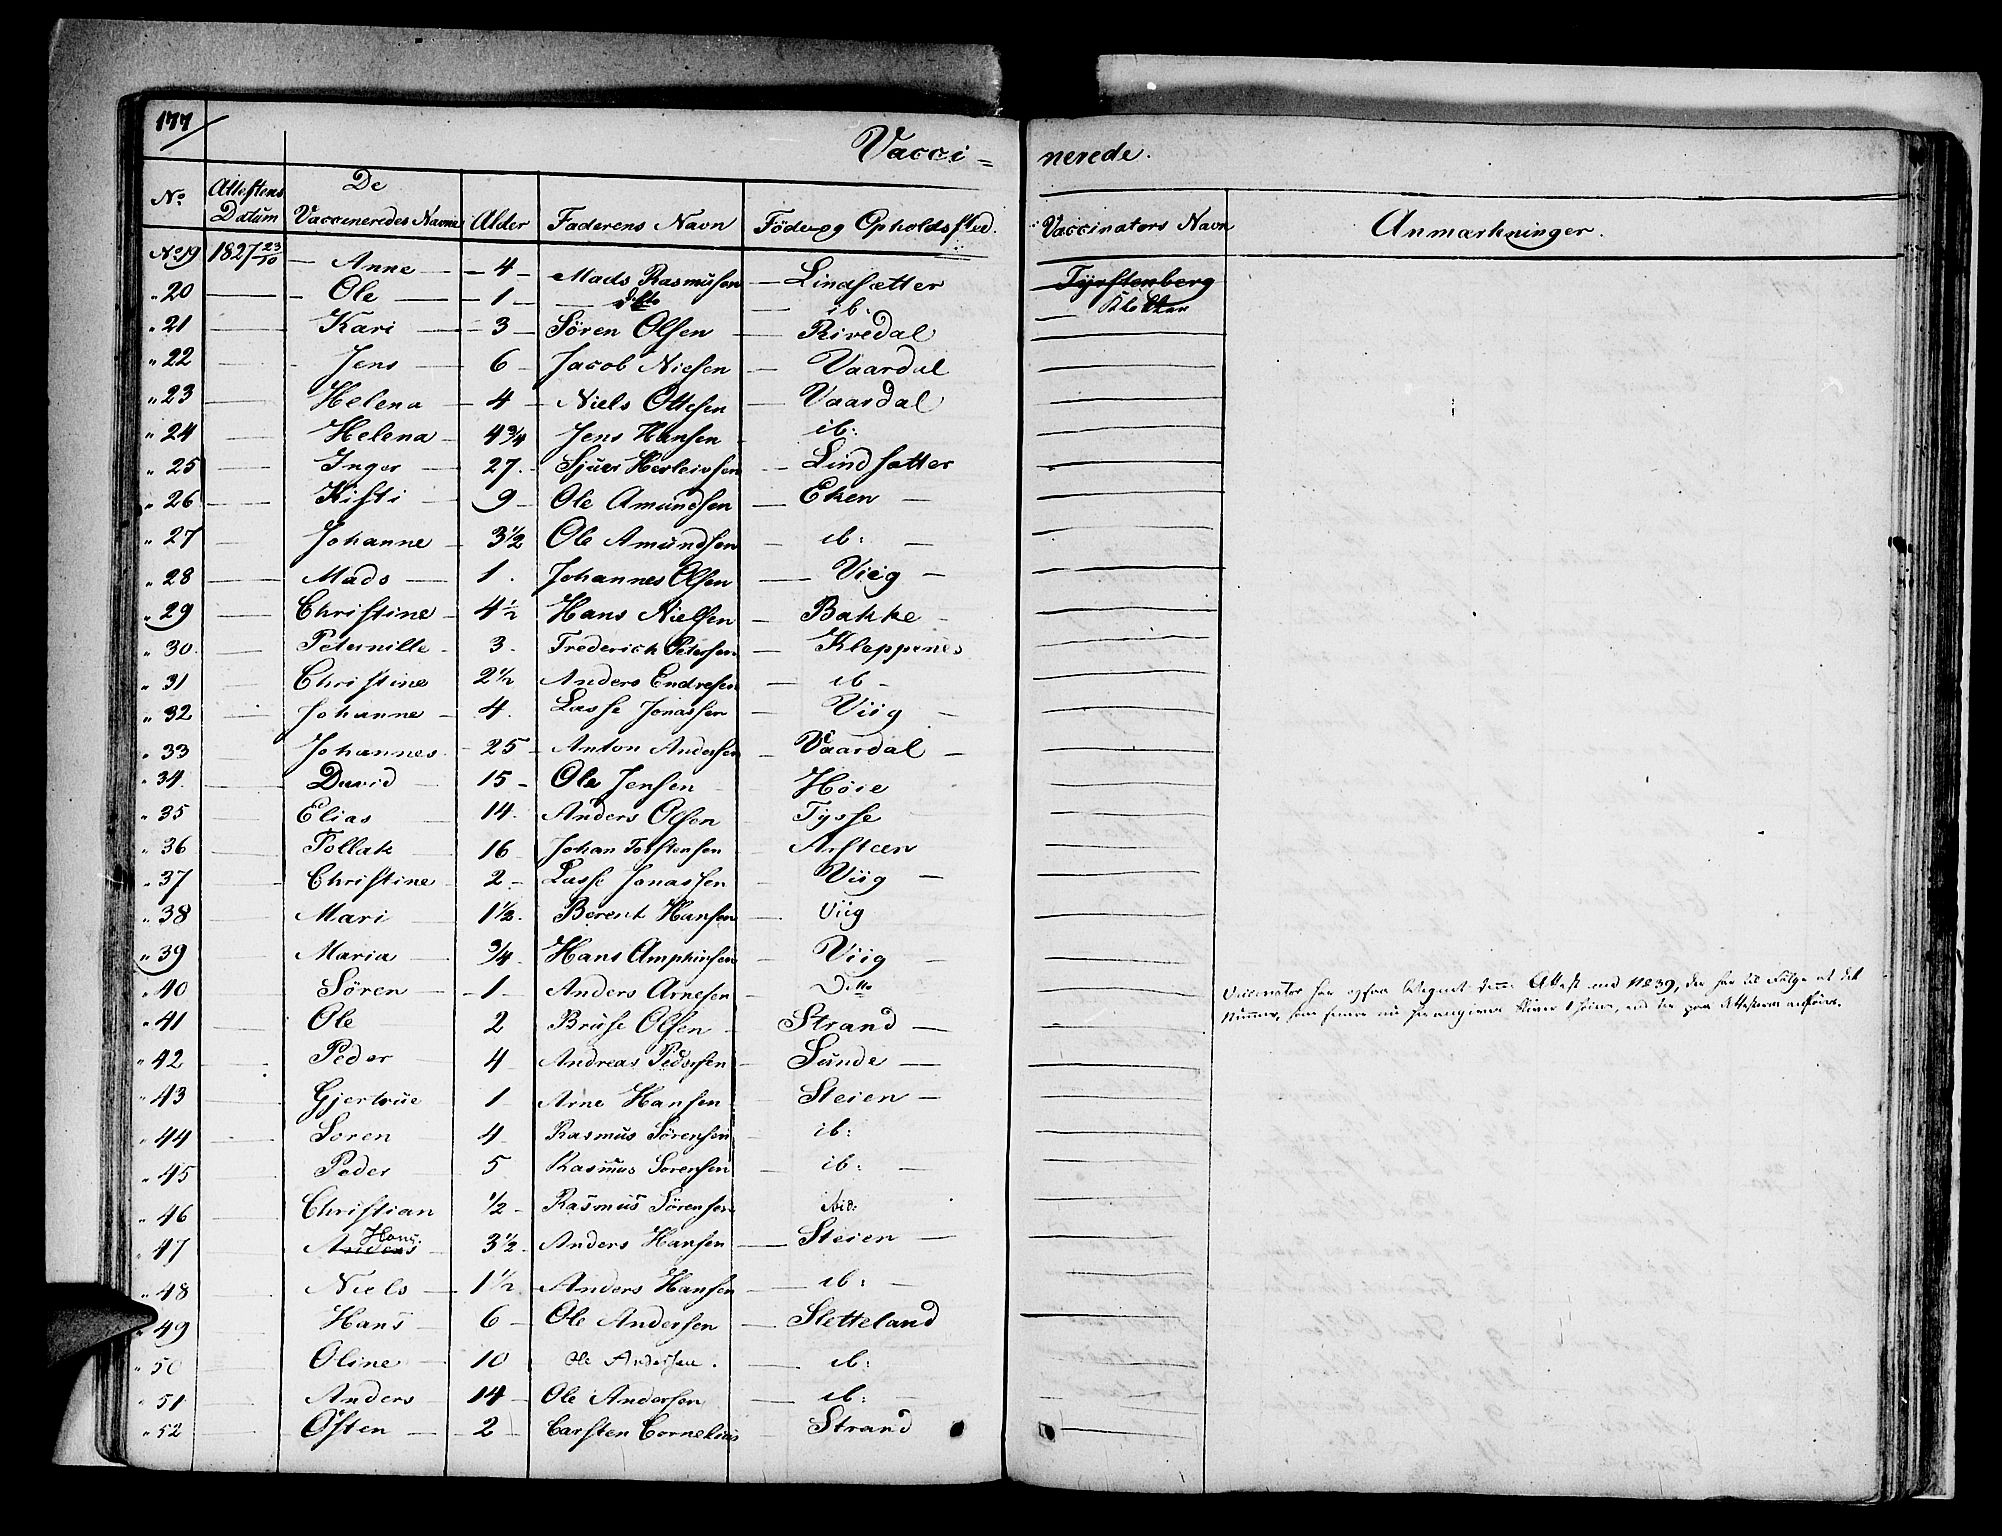 177
Vacci=nerede.
No. Attestens Datum De Vaccineredes Navne Alder Faderens Navn Föde og Opholdssted. Vaccinators Navn Anmærkninger.
No 19 1827 23/10 Anne 4 Mads Rasmussen Lindsætter Tyrstenberg
" 20 — Ole 1 ditto ib. Klokker
" 21 — Kari 3 Sören Olsen Rivedal
" 22 — Jens 6 Jacob Nielsen Vaardal
" 23 — Helena 4 Niels Ottesen Vaardal
" 24 — Helena 4 3/4 Jens Hansen ib:
" 25 — Inger 27. Sjuer Herleivsen Lindsætter
" 26 — Kisti 9 Ole Amundsen Eken
" 27 — Johanne 3 1/2 Ole Amundsen ib:
" 28 — Mads 1. Johannes Olsen Viig
" 29 — Christine 4 1/2 Hans Nielsen Bakke
" 30. — Peternille 3. Frederich Petersen Kleppenes
" 31 — Christine 2 1/2 Anders Endresen ib
" 32 — Johanne 4. Lasse Jonassen Viig
" 33 — Johannes 25 Anton Andersen Vaardal
" 34. — David 15 Ole Jensen Höie
" 35 — Elias 14. Anders Olsen Tysse
" 36 — Tollak 16 Johan Torstensen Arsteen
" 37 — Christine 2 Lasse Jonassen Viig
" 38 — Mari 1 1/2. Berent Hansen Viig
" 39 — Maria 3/4 Hans Amphinsen Viig
" 40 — Sören 1 Anders Arnesen Ditto
" 41 — Ole 2 Bruse Olsen Strand
" 42 — Peder 4 Andreas Pedersen Sunde
" 43 — Gjertrue 1 Arne Hansen Steien
" 44 — Soren 4 Rasmus Sörensen ib:
" 45 — Peder 5 Rasmus Sorensen ib:
" 46 — Christian 1/2 Rasmus Sörensen ibid:
" 47 — Anders Hans. 3 1/2. Anders Hansen Steien
" 48 — Niels 1 1/2. Anders Hansen ib:
" 49 — Hans 6 Ole Andersen Sletteland
" 50 — Oline 10 Ole Andersen. ib:
" 51 — Anders 14 Ole Andersen ib:
" 52 — Östen 2 Carsten Cornelius Strand
Vaccinator har ogsaa Attest med No 39, der har til Følge at det
Nummer, som senere nu, end der paa Attesterne anføres.